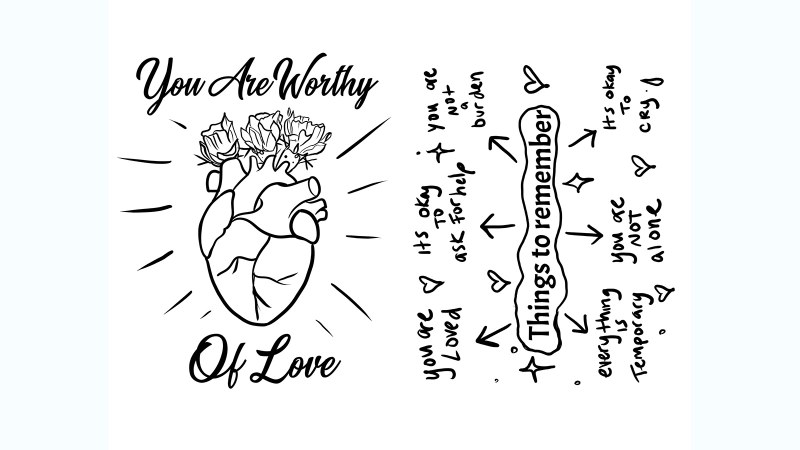 You Are Worthy
Of Love
Things to remember
you are
Loved
Its okay
To
ask for help
you are
NOT
a
burden
everything
is
Temporary
you are
NOT
alone
Its okay
To
cry :)